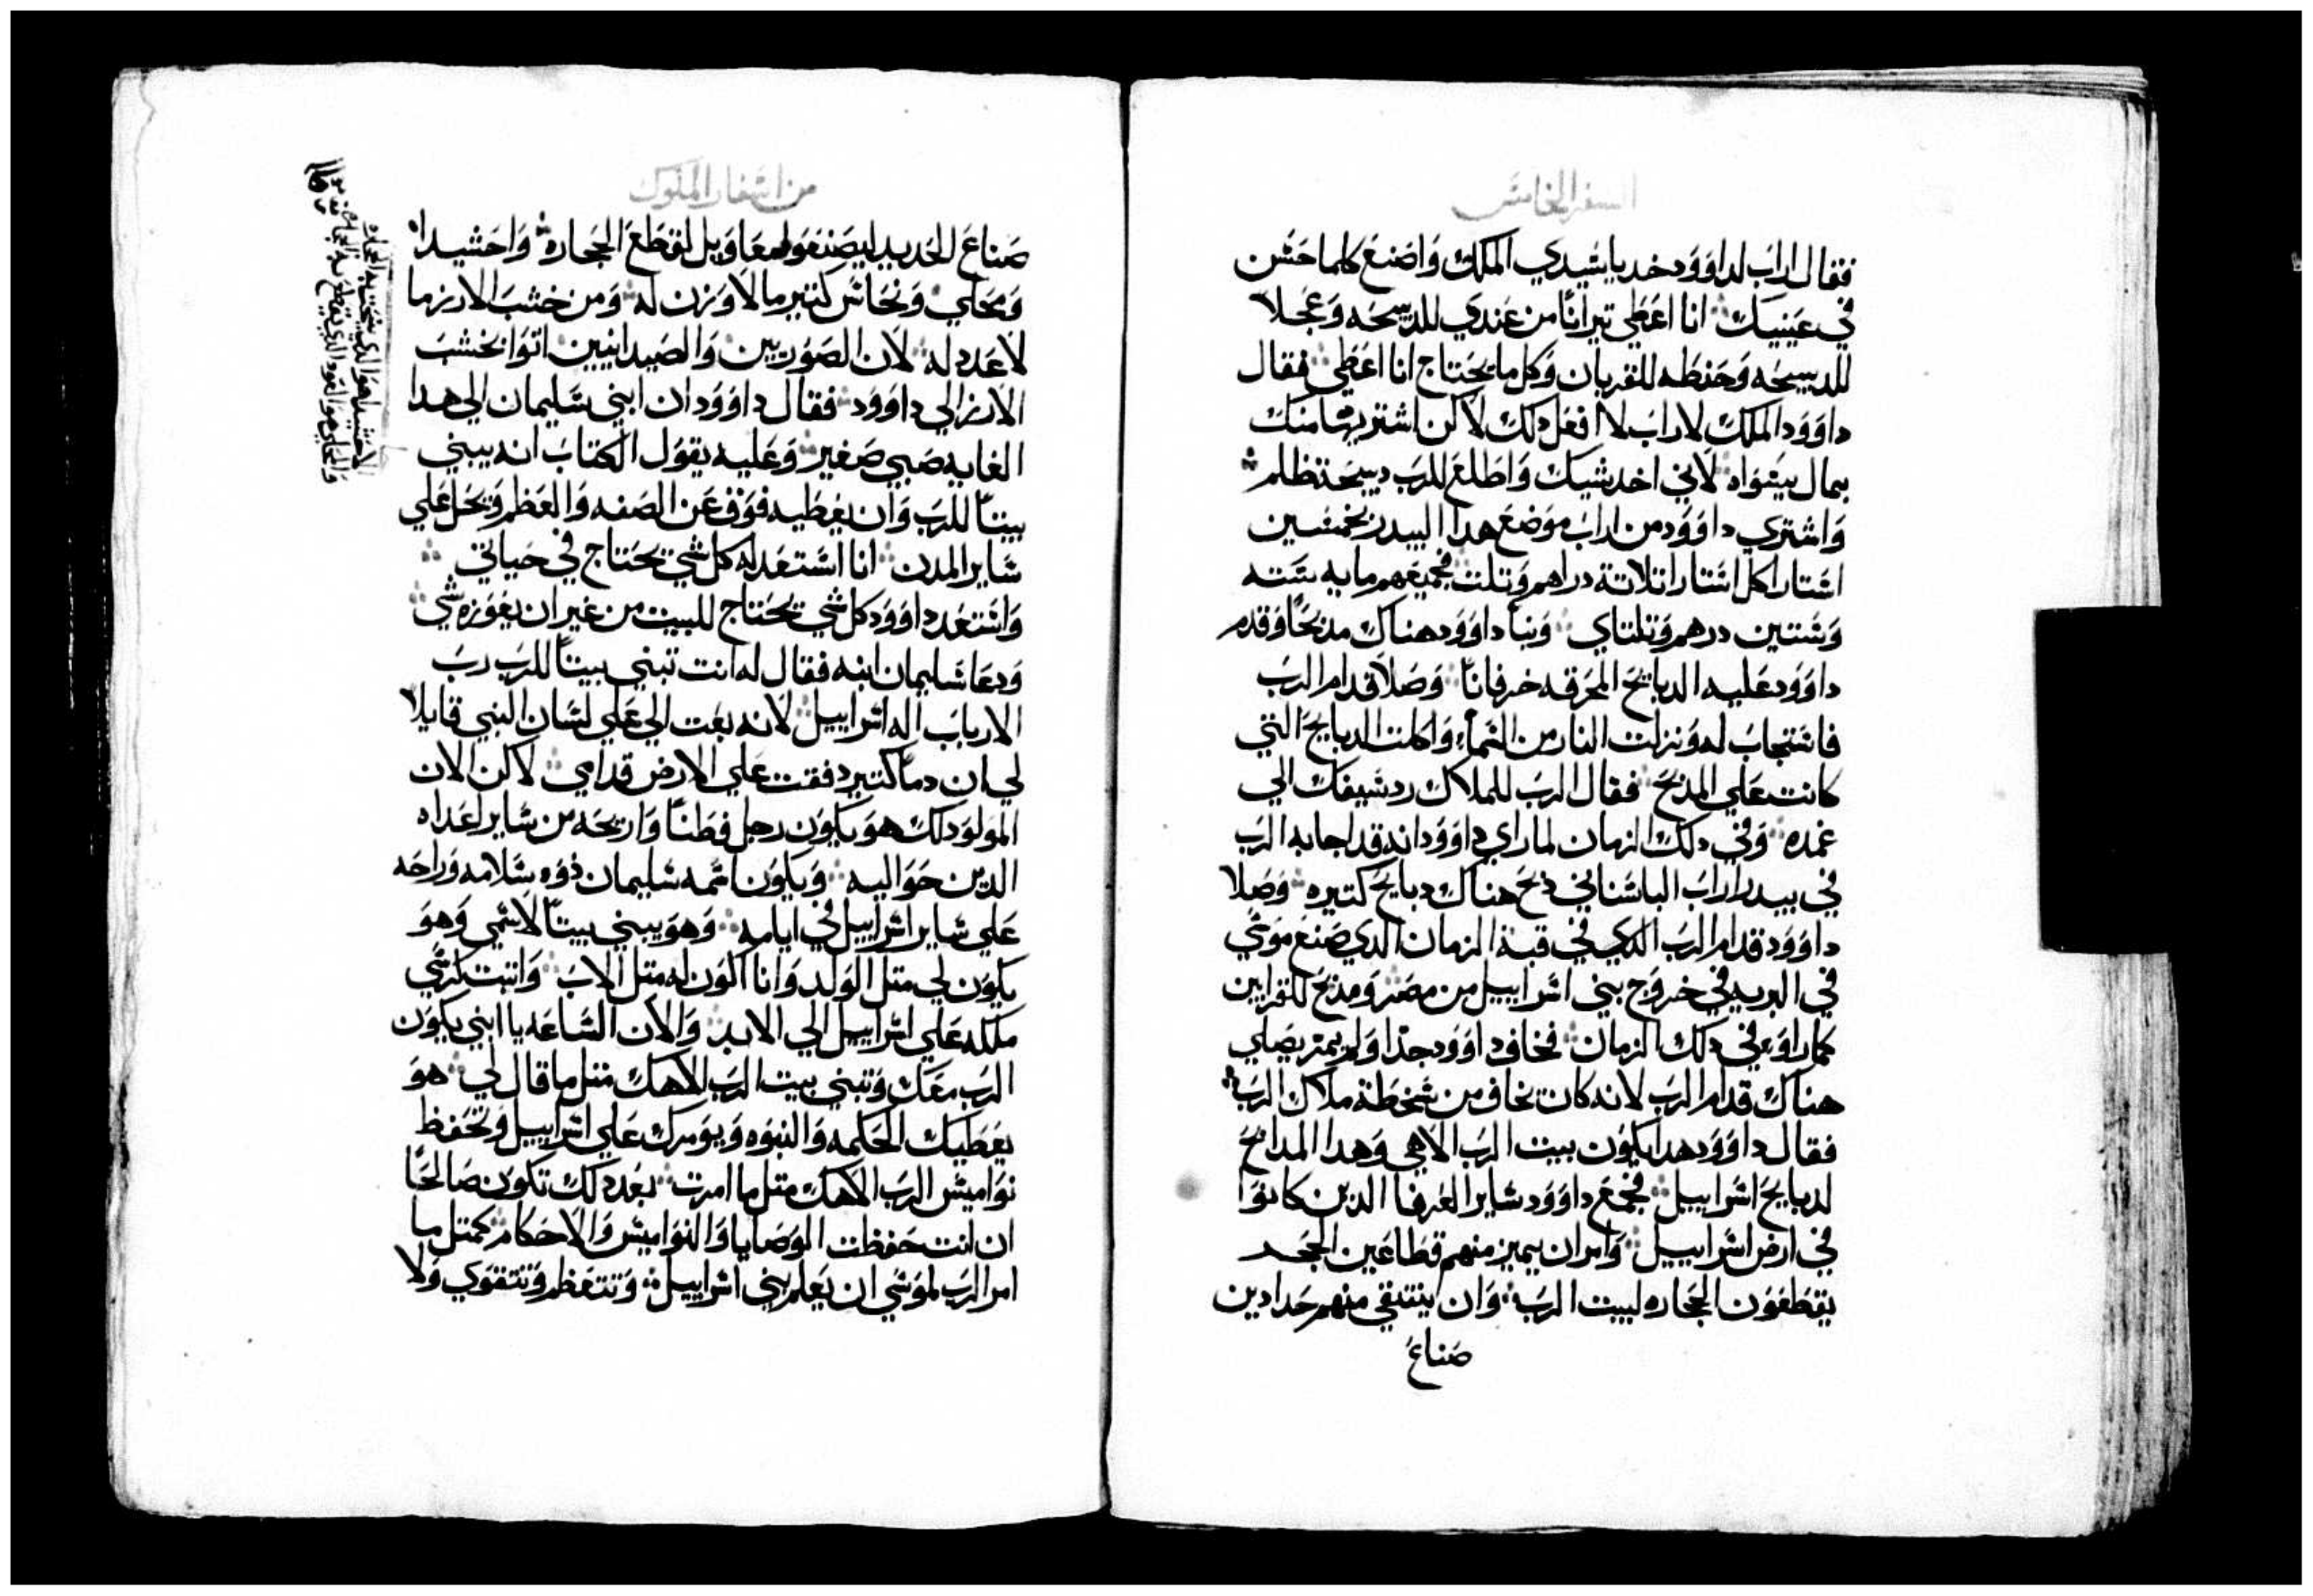 السفر الخامس
فقال اراب لداوود خد يا سيدي الملك واصنع كلما حسن
في عينيك انا اعطي تيرانًا من عندي للدبيحه وعجلا
للدبيحه وحنطه للقربان وكل ما يحتاج انا اعطي فقال
داوود الملك لاراب لا افعل دلك لاكن اشتريها منك
بمال يسواه لاني اخد شيك واطلع للرب دبيحة
واشتري داوود من اراب موضع هدا البيدر بخمسين
استارا كل استار اتلاتة دراهم وتلت فجميعهم مايه سته
وستين درهم وتلتاي وبنا داوود هناك مدبحًا وقدم
داوود عليه الدبايح المحرقه خرفانًا وصلا قدام الرب
فاستجاب له ونزلت النار من السماء واكلت الدبايح التي
كانت علي المدبح فقال الرب للملاك رد سيفك الي
غمده وفي دلك الزمان لما راي داوود انه قد اجابه الرب
في بيدر اراب الباساني دبح هناك دبايح كتيره وصلا
داوود قدام الرب الدي في قبة الزمان الدي صنع موسي
في البريه في خروج بني اسراييل من مصر ومدبح للقرابين
كما راوه في دلك الزمان فخاف داوود جدًا ولم يمر يصلي
هناك قدام الرب لانه كان يخاف من سخطة ملاك الرب
فقال داوود هدا يكون بيت الرب الاهي وهدا المدابح
لدبايح اسراييل فجمع داوود ساير العرفا الدين كانوا
في ارض اسراييل وامر ان يميز منهم قطاعين الحجر
يقطعون الحجاره لبيت الرب وان ينتقي منهم حدادين
صناع
من اسفار الملوك
صناع للحديد ليصنعو لهم معاويل لقطع الحجاره واحشيدا
ومحلي ونحاس كتير ما لا وزن له ومن خشب الارز ما
لا عدد له لان الصوريين والصيدانيين اتوا بخشب
الارز الي داوود فقال داوود ان ابني سليمان الي هدا
الغايه صبي صغير وعليه يقول الكتاب انه يبني
بيتًا للرب وان يعطيه فوق عن الصفه والعظم ويحل علي
ساير المدن انا استعد له كل شي يحتاج في حياتي
واستعد داوود كل شي يحتاج للبيت من غير ان يعوزه شي
ودعا سليمان ابنه فقال له انت تبني بيتًا للرب رب
الارباب اله اسراييل لانه بعت الي علي لسان النبي قايلا
لي ان دمًا كتير دفقت علي الارض قدامي لاكن الان
المولود لك هو يكون رجل فطنًا واريحه من ساير اعداه
الدين حواليه ويكون اسمه سليمان دوه سلامه وراحه
علي ساير اسراييل في ايامه وهو يبني بيتًا لاسمي وهو
يكون لي متل الولد وانا اكون له متل الاب واتبت كرسي
ملكه علي اسراييل الي الابد والان الساعه يا ابني يكون
الرب معك وتبني بيت الرب الاهك متل ما قال لي هو
يعطيك الحكمه والنبوه ويومرك علي اسراييل وتحفظ
نواميس الرب الاهك متل ما امرت بعد دلك تكون صالحًا
ان انت حفظت الوصايا والنواميس والاحكام كمتل ما
امر الرب لموسي ان يعلم بني اسراييل وتتعظم وتتقوي ولا
الاحشيدا هو الدي ينحت به الحجاره